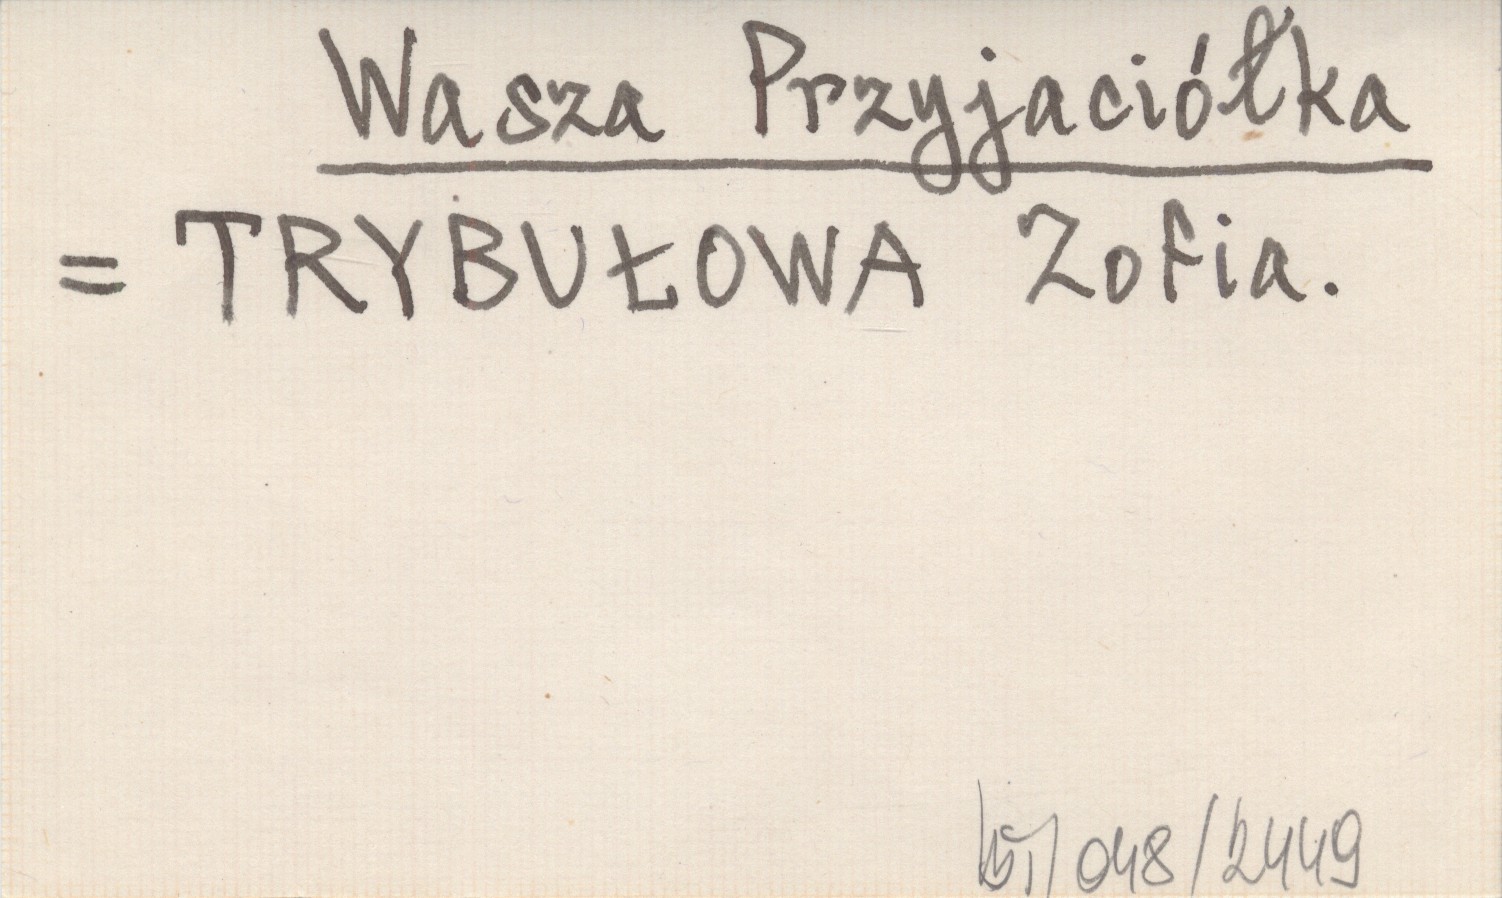 Wasza Przyjaciółka
= TRYBUŁOWA Zofia.
048/2449